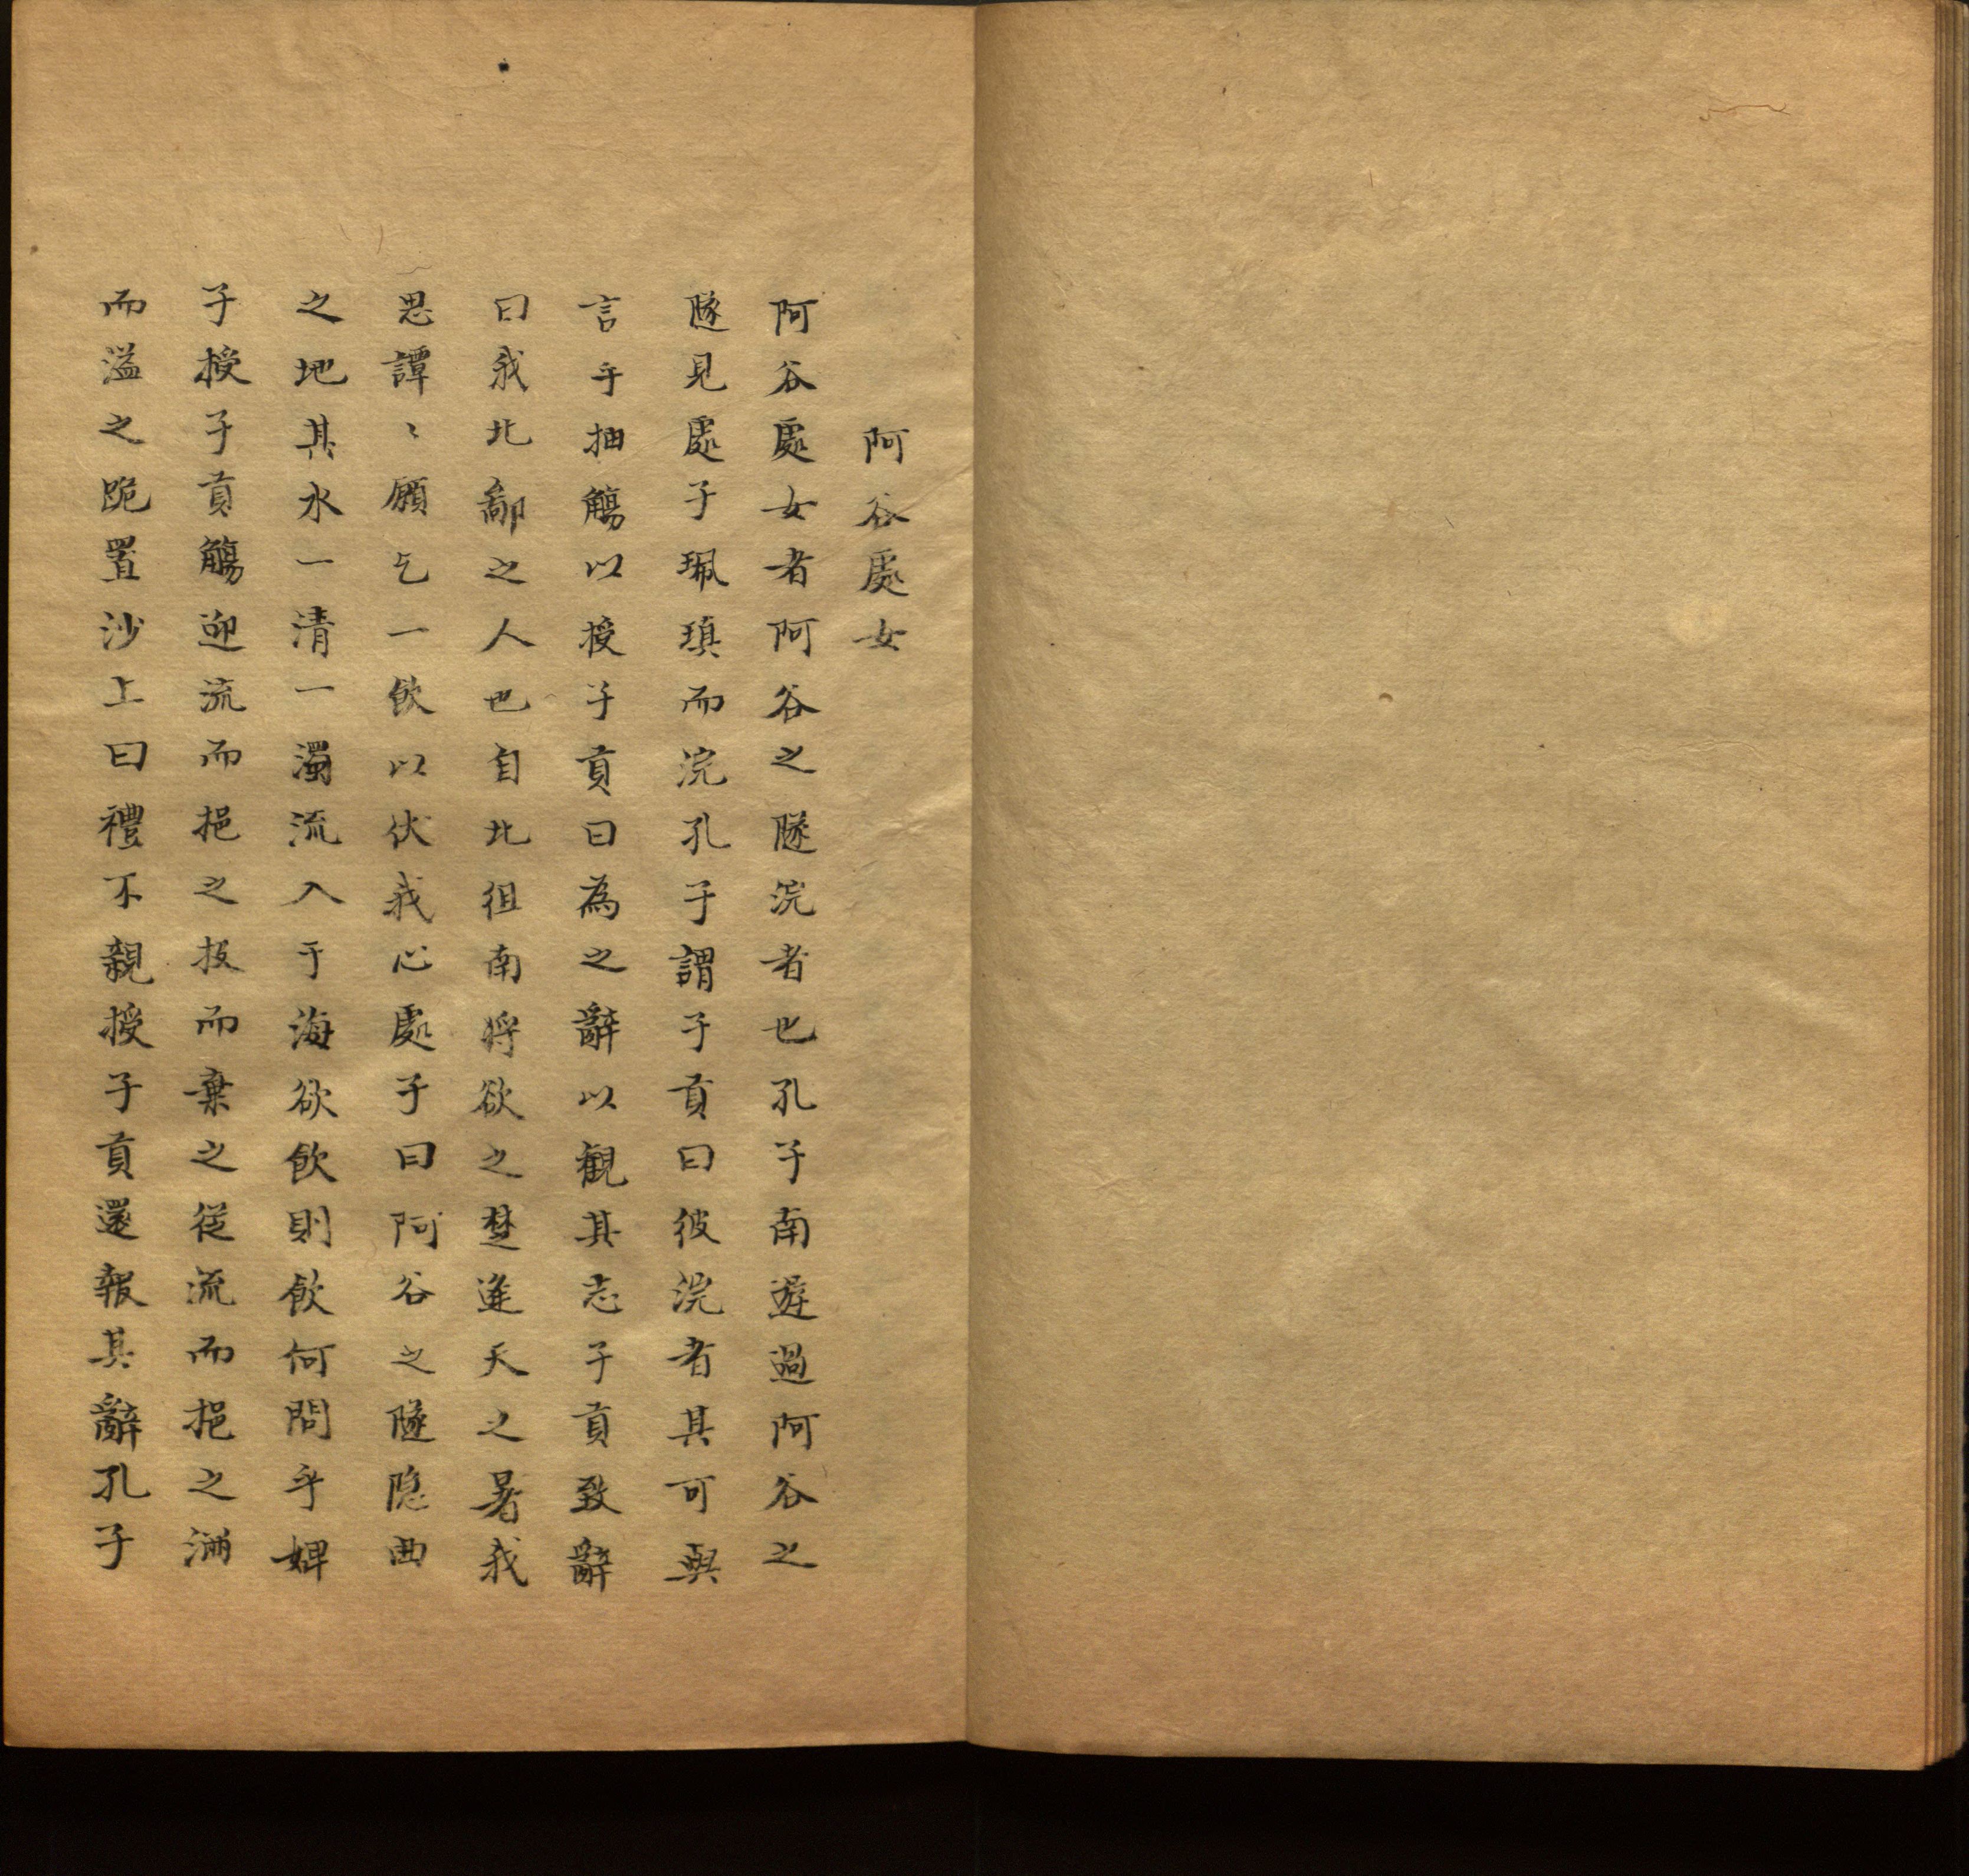 阿谷處女
阿谷處女者阿谷之隧浣者也孔子南遊過阿谷之
隧見處子珮瑱而浣孔子謂子貢曰彼浣者其可與
言乎抽觴以授子貢曰為之辭以觀其志子貢致辭
曰我北鄙之人也自北徂南將欲之楚逢天之暑我
思譚〻願乞一飲以伏我心處子曰阿谷之隧隱曲
之地其水一清一濁流入于海欲飲則飲何問乎婢
子授子貢觴迎流而挹之投而棄之從流而挹之滿
而溢之跪置沙上曰禮不親授子貢還報其辭孔子